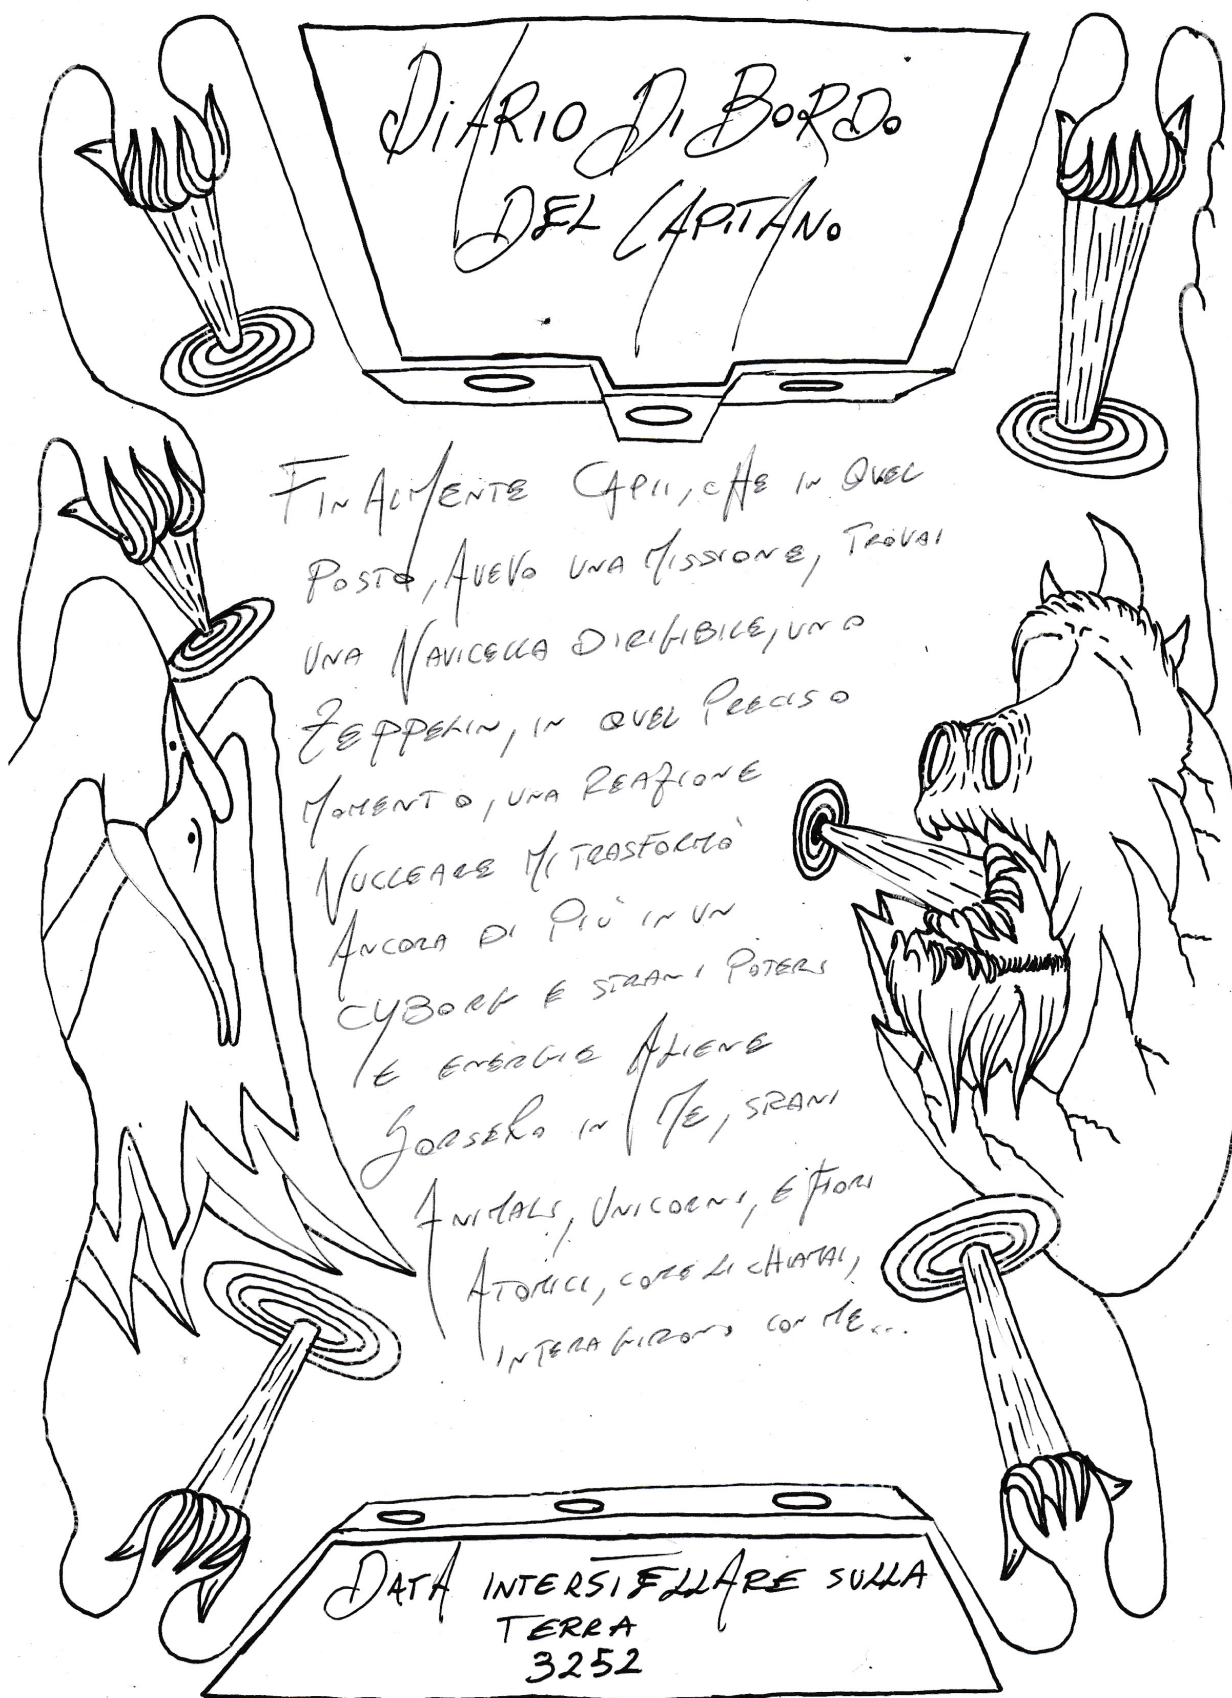 DIARIO DI BORDO
DEL CAPITANO
FINALMENTE CAPII, CHE IN QUEL
POSTO, AVEVO UNA MISSIONE, TROVAI
UNA NAVICELLA DIRIGIBILE, UNO
ZEPPELIN, IN QUEL PRECISO
MOMENTO, UNA REAZIONE
NUCLEARE MI TRASFORMÒ
ANCORA DI PIÙ IN UN
CYBORG E STRANI POTERI
E ENERGIE ALIENE
SORSERO IN ME, SRANI
ANIMALI, UNICORNI, E FIORI
ATOMICI, COME LI CHIAMAI,
INTERAGIRONO CON ME...
DATA INTERSTELLARE SULLA
TERRA
3252